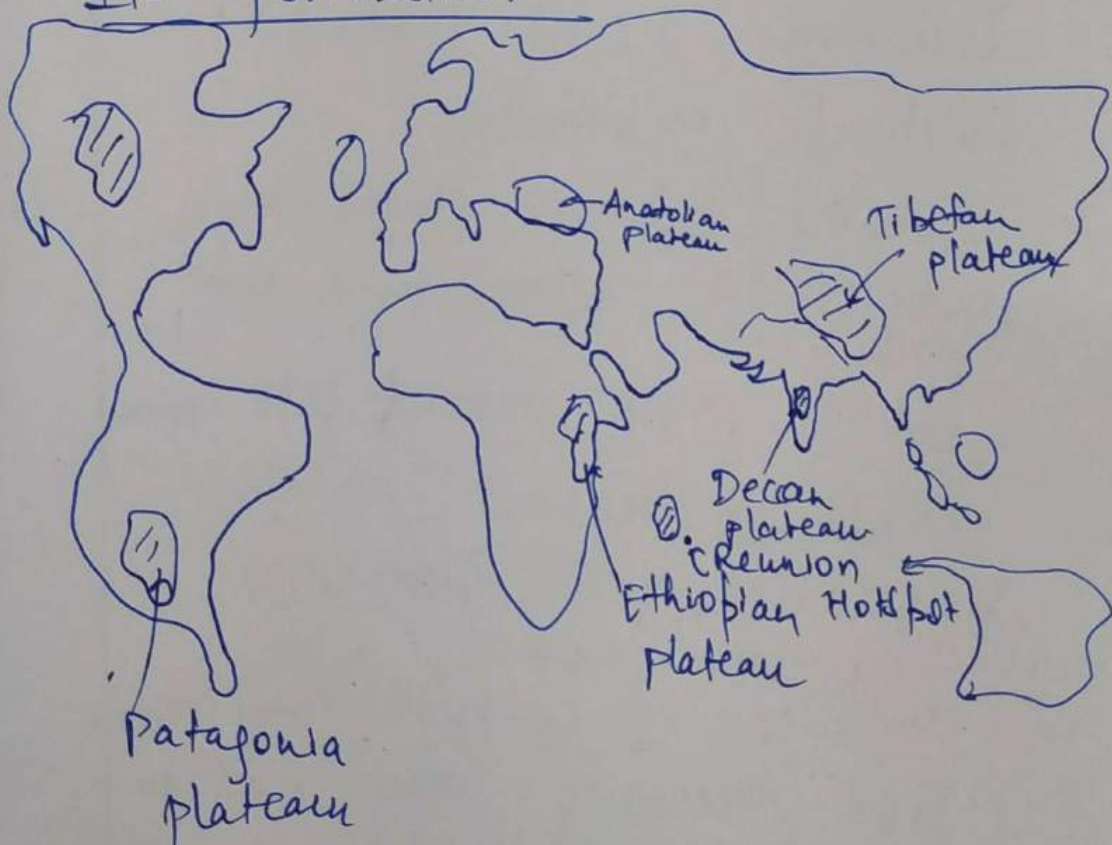 Anatolian
plateau
Tibetan
plateau
Deccan
plateau
(Reunion
Hotspot
Ethiopian
plateau
Patagonia
plateau